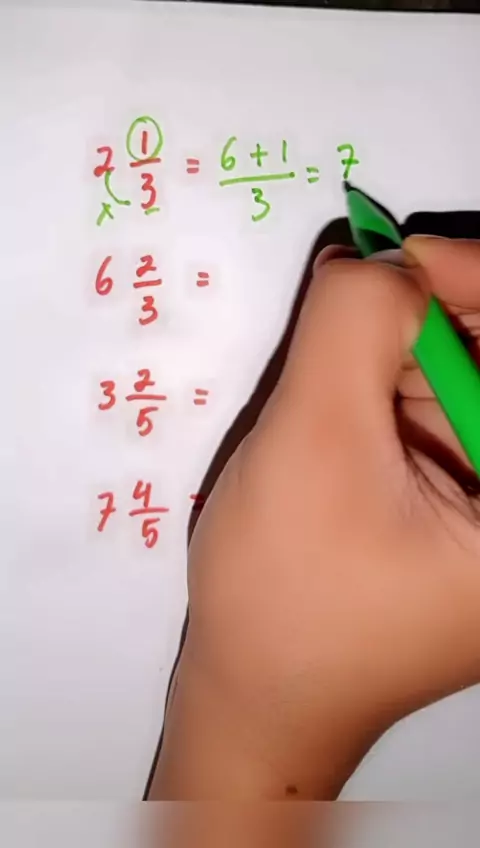 2 1/3 = 6+1/3 = 7
x
6 2/3 =
3 2/5 =
7 4/5 =